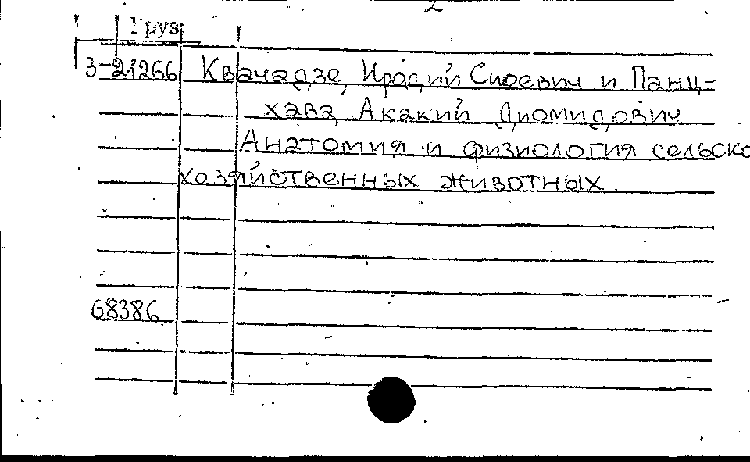 2
Груз.
3-21266 Квачадзе, Иродий Сиоевич и Панц-
хава, Акакий Диомидович
Анатомия и физиология сельско
хозяйственных животных.
68386